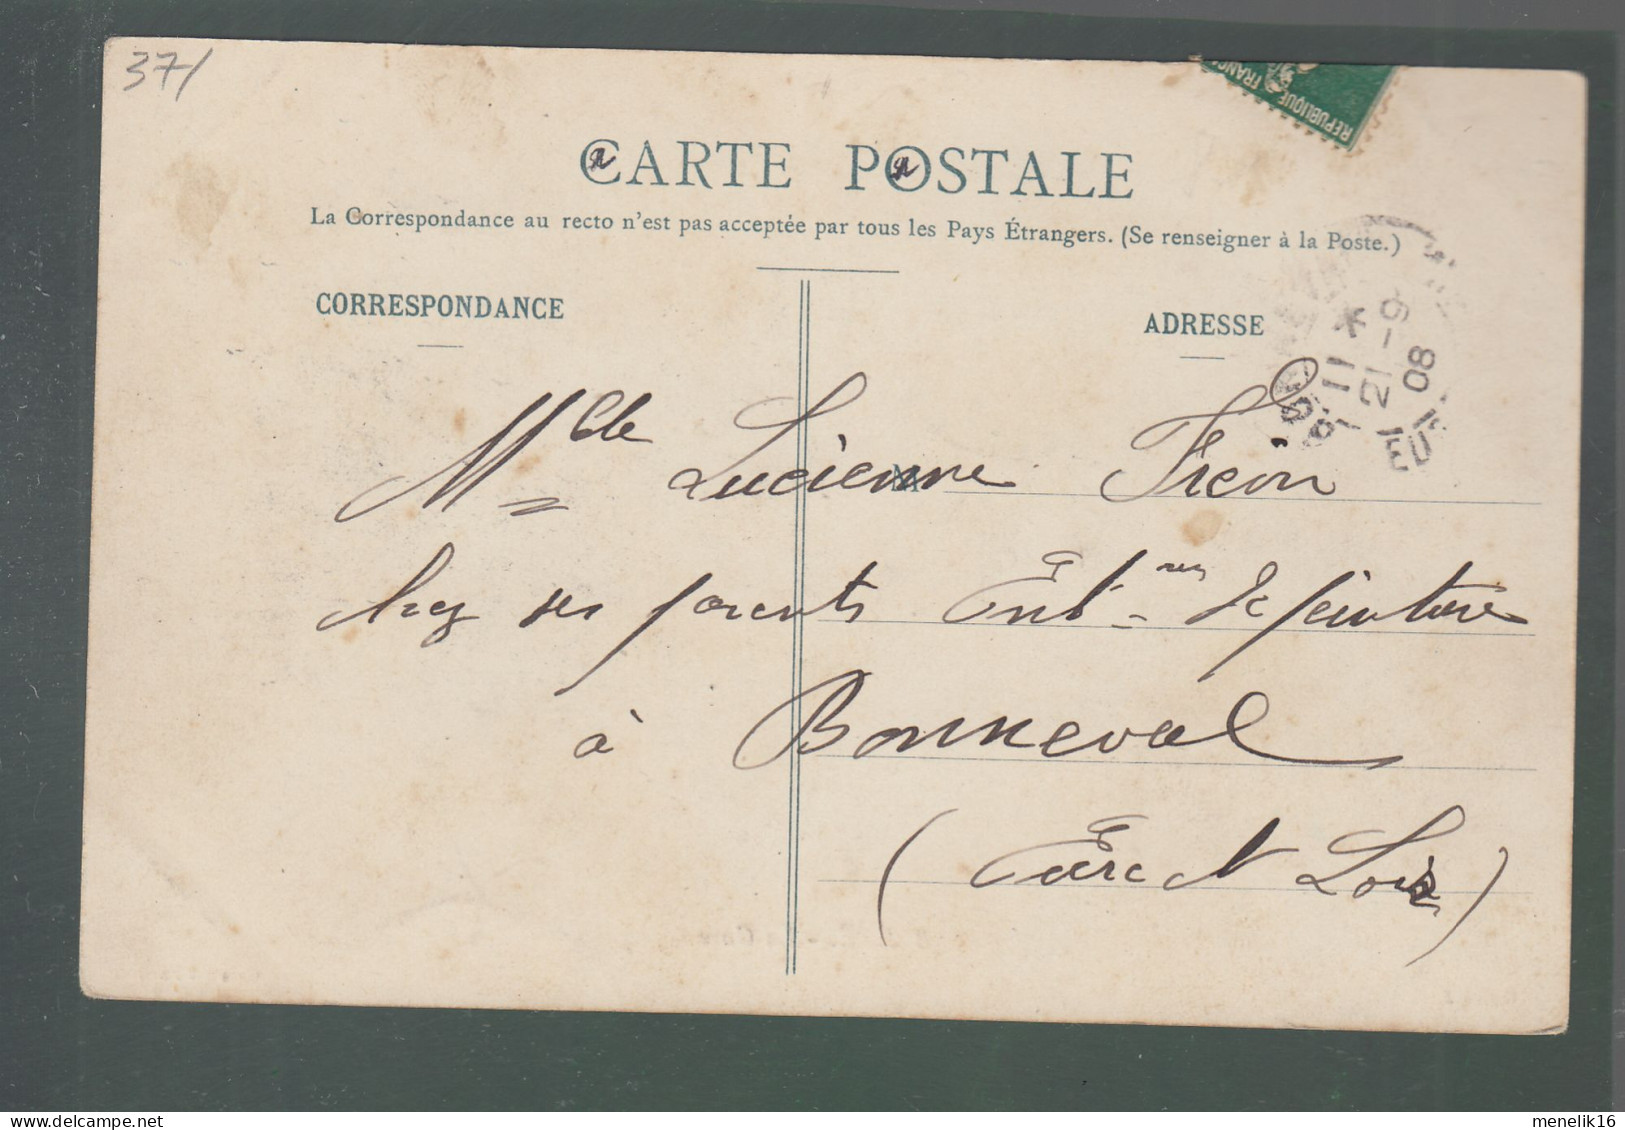 37/
RÉPUBLIQUE FRANÇ
CARTE POSTALE
La Correspondance au recto n'est pas acceptée par tous les Pays Étrangers. (Se renseigner à la Poste.)
CORRESPONDANCE
ADRESSE
11
21 - 9
08
Mlle Lucienne Fréon
chez ses parents Entrep de peinture
à Bonneval
(Eure et Loir)
menelik16